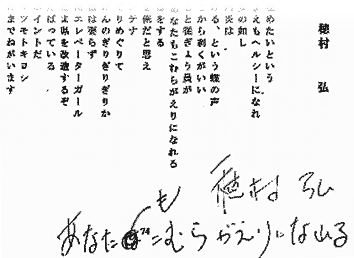 穂村 弘
めたいという
えもヘルシーになれ
の如し
炎は
る、という蝶の声
から剥くがいい
と従ぎょう員が
あなたもこむらがえりになれる
をする
俺だと思え
テナ
りめぐりて
んのぎりぎりぎりか
は張らず
エレベーターガール
よ県を改造するぞ
ばっている
イントだ
ツモトキヨシ
までねがいます
穂村弘
も
あなた 74 こむらがえりになれる